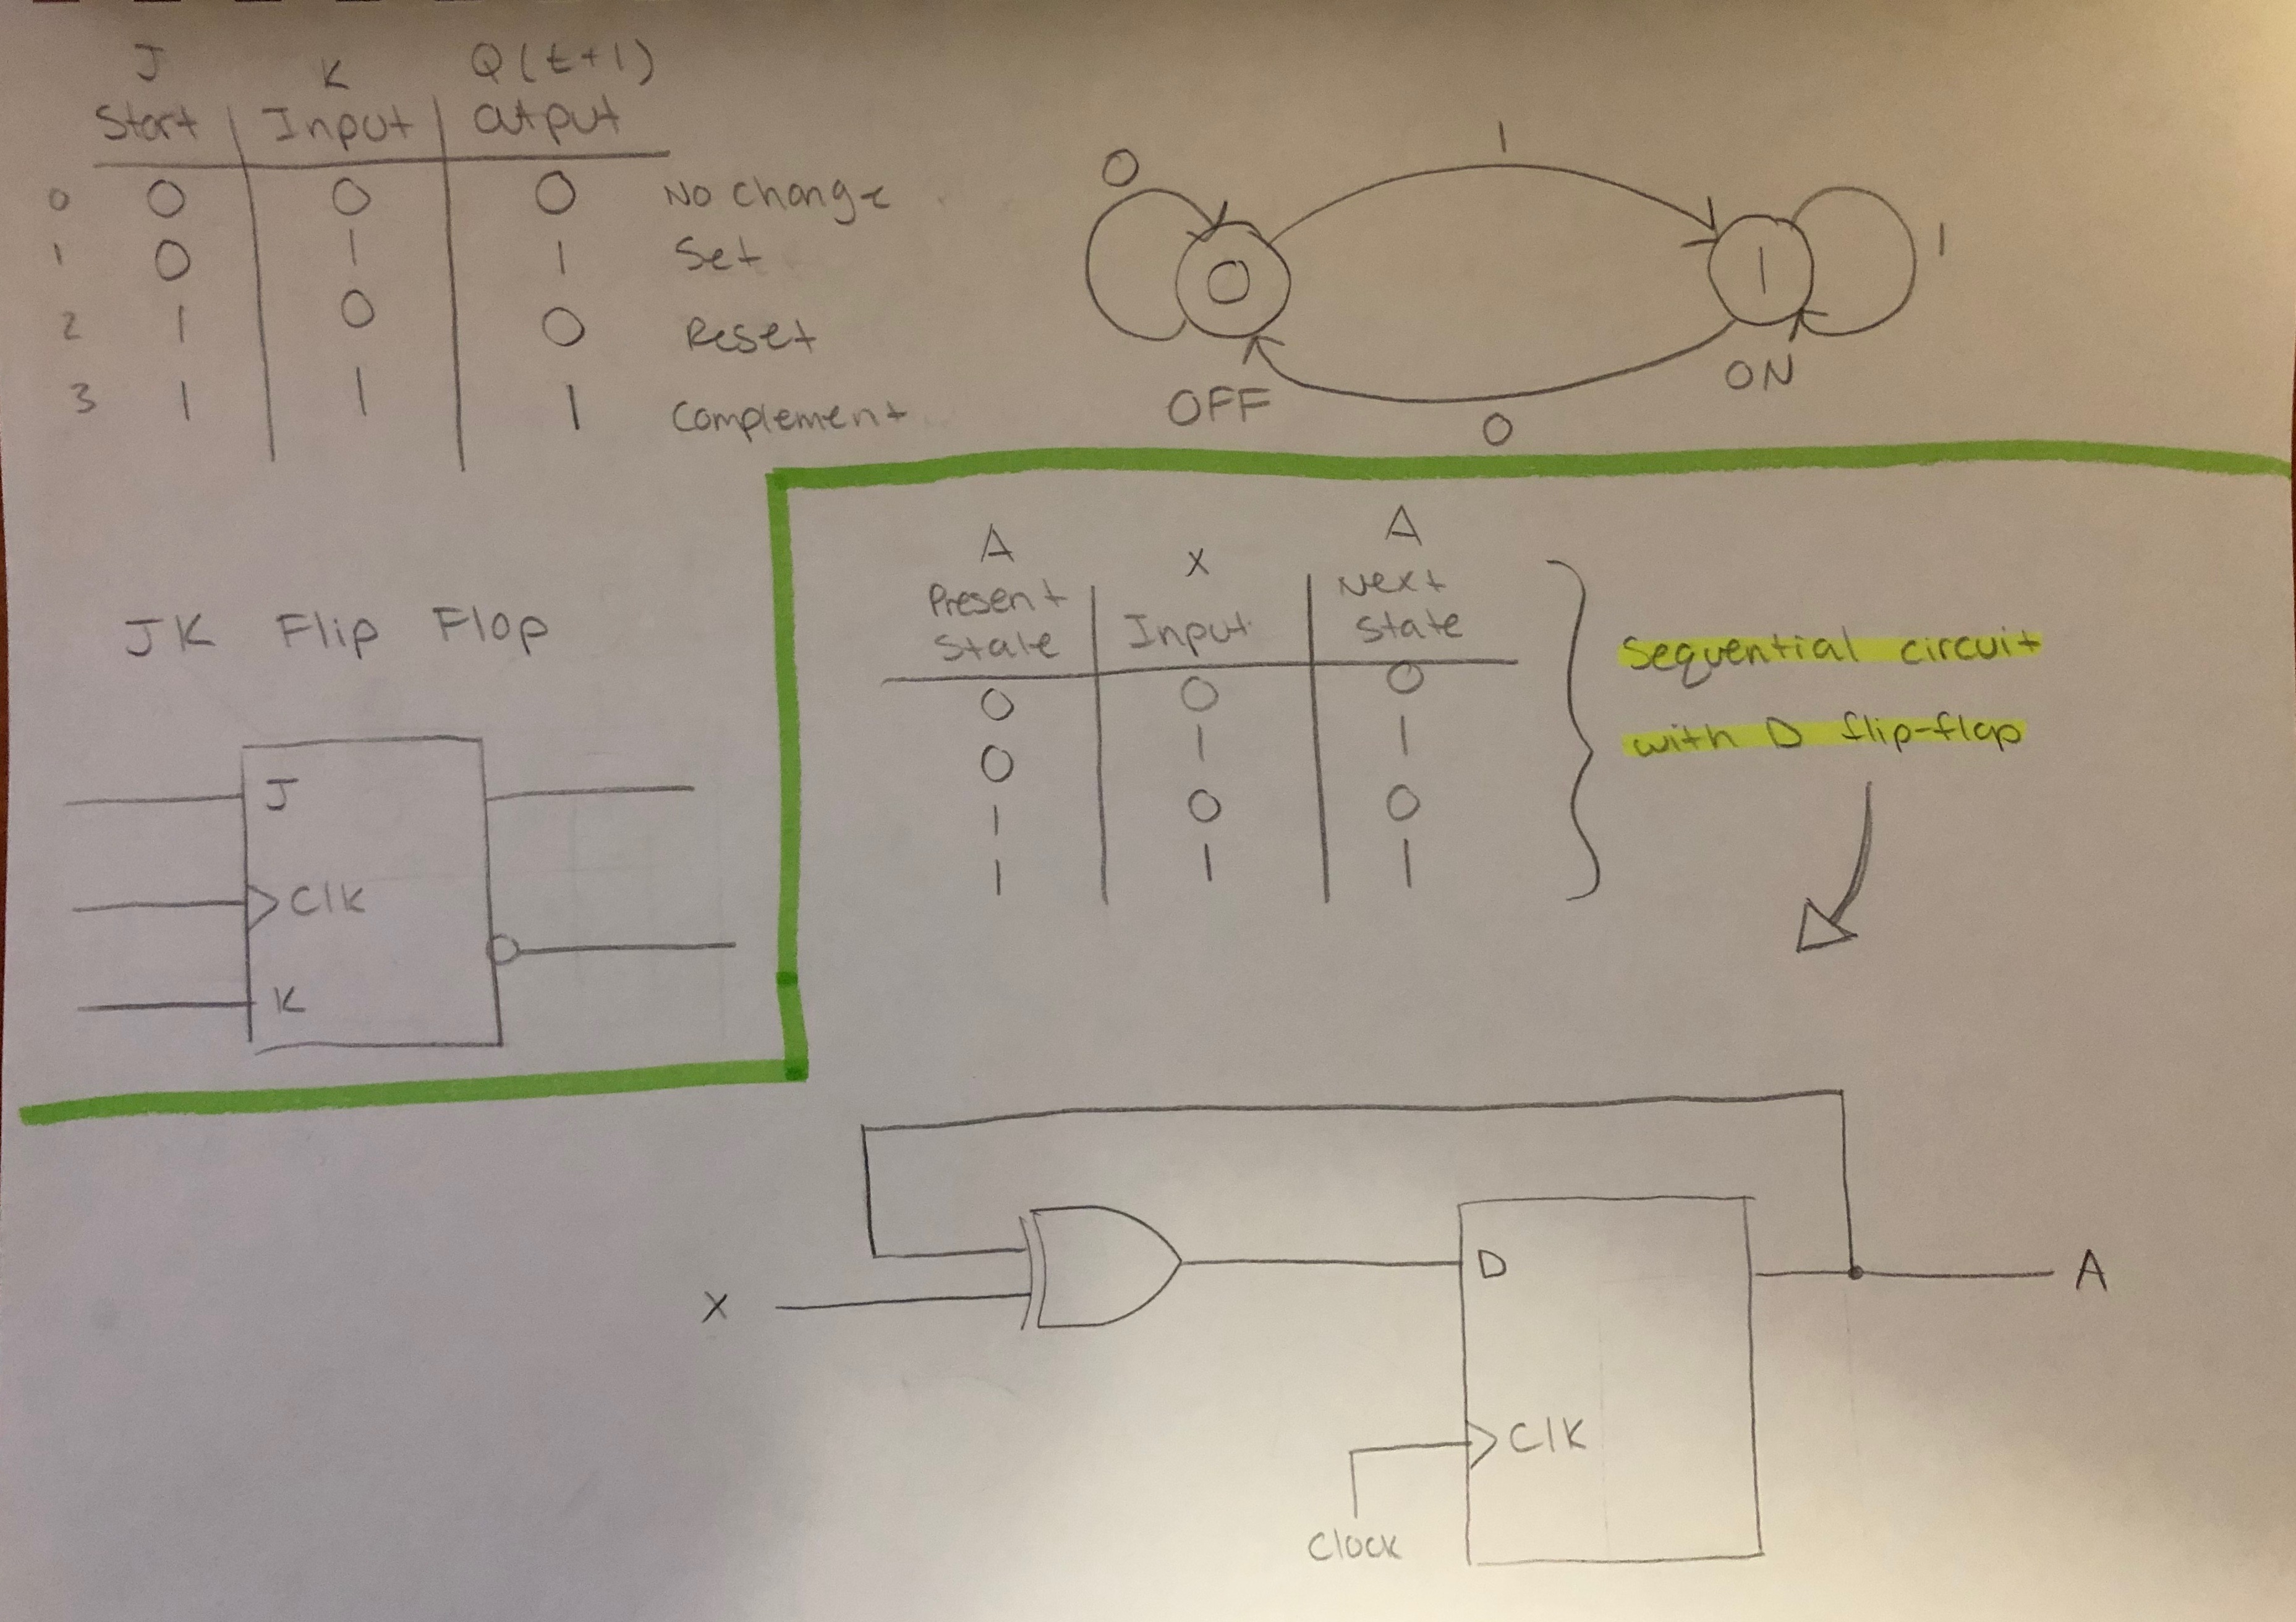 J K Q(t+1)
Start Input Output
0 0 0 0 No change
1 0 1 1 Set
2 1 0 0 Reset
3 1 1 1 Complement
0 1
0 1 1
OFF ON
0
JK Flip Flop
J
Clk
K
A X A
Present Input Next
State State
0 0 0
0 1 1
1 0 0
1 1 1
Sequential circuit
with D flip-flop
X D A
Clk
Clock